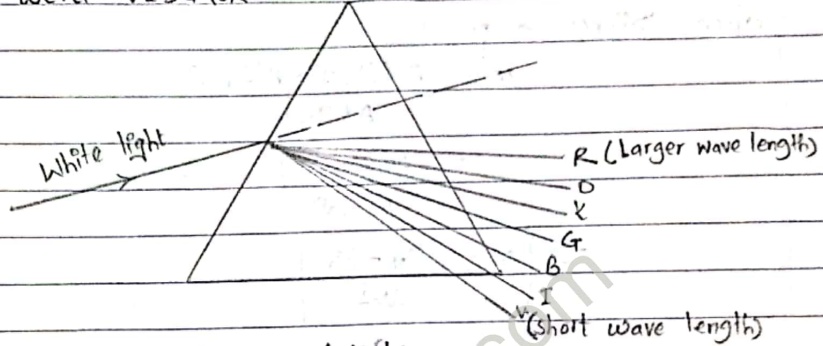 White light
R (Larger wave length)
O
Y
G
B
I
V (short wave length)
com